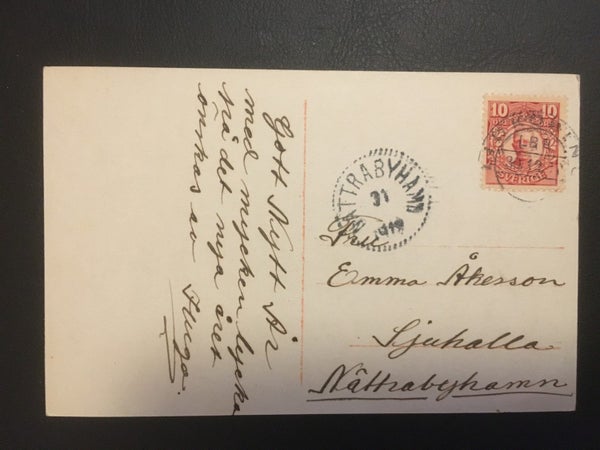 Gott Nytt År
med mycken lycka
på det nya året
önskas av
Hugo.
10 10
SVERIGE
NÄTTRABYHAMN
31
Fru
Emma Åkesson
Sjuhalla
Nättrabyhamn